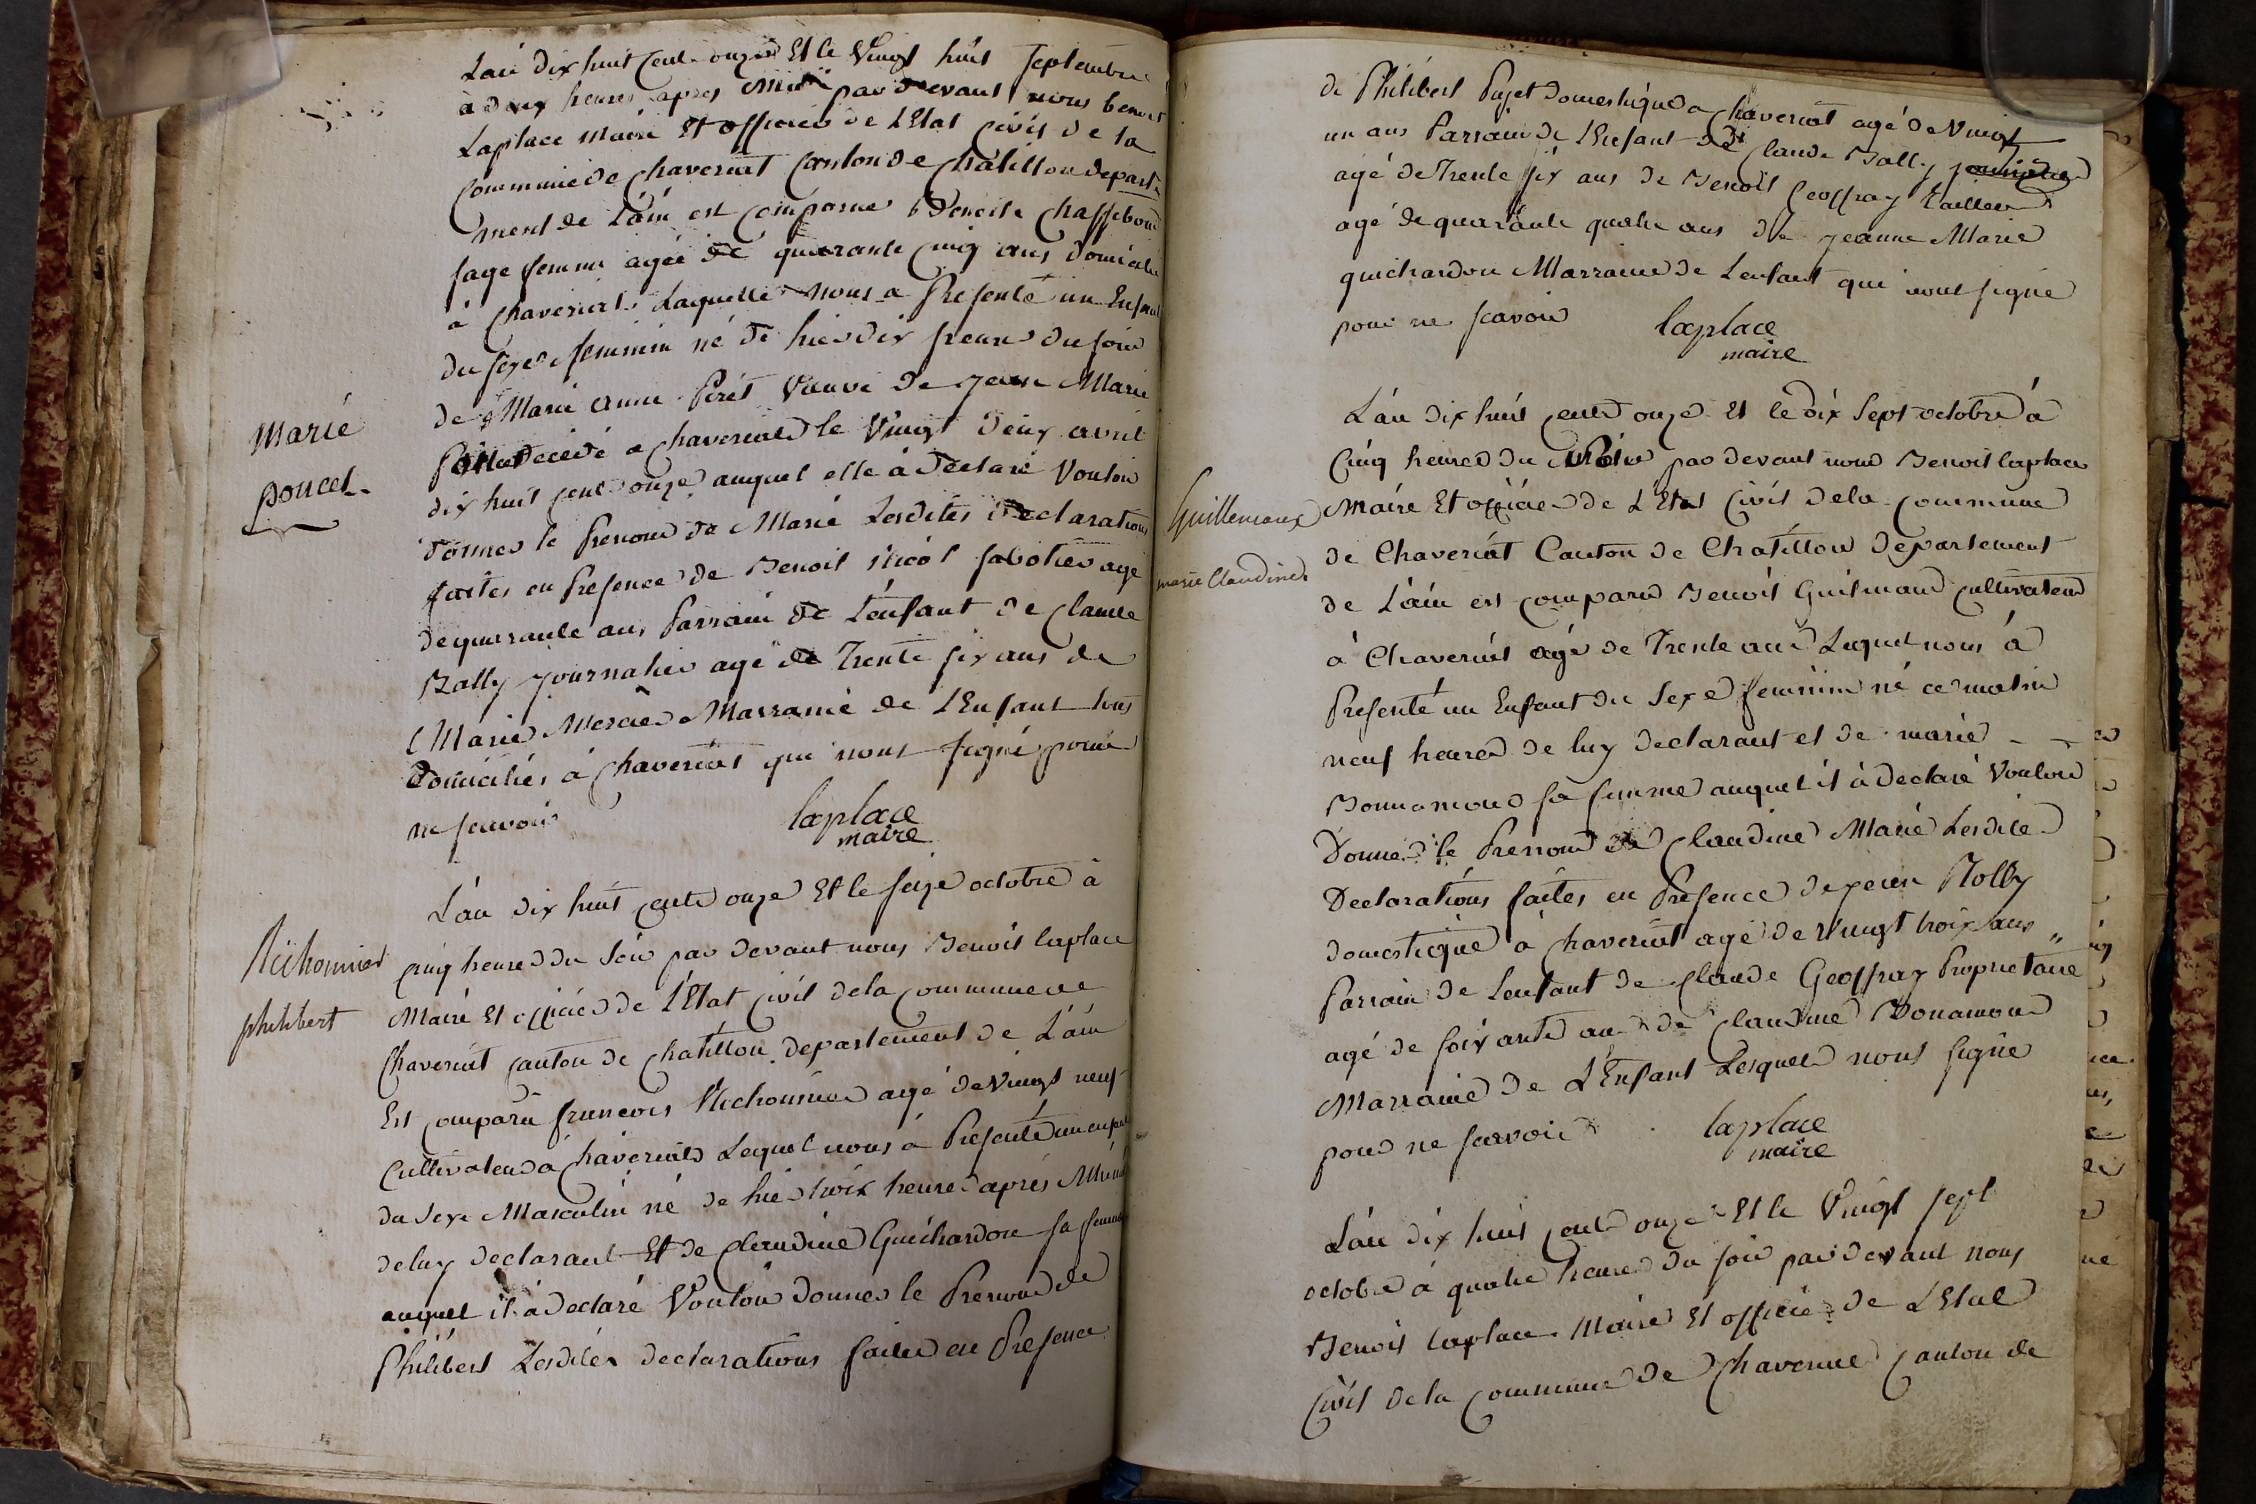 L'an dix huit cent onze Et le Vingt huit septembre
à deux heures apres midi par devant nous benoit
Laplace maire Et officier de L'Etat Civil de la
Commune de Chaveriat Canton de Châtillon départe
ment de L'ain est comparue Benoite Chassebou
sage femme agée de quarante Cinq ans domiciliée
à Chaveriat Laquelle nous a Presenté un Enfant
du sexe feminin né de hier dix heures du soir
de Marie anne Perêt Veuve de jean Marie
decedé a Chaveriat le Vingt deux avril
dix huit cent onze auquel elle à déclaré Vouloir
donner le Prenom de Marie Lesdites déclarations
faites en Presence de Benoit Nicol sabotier agé
de quarante ans Parrain de L'enfant de Claude
Bally journalier agé de Trente six ans de
Marie Mercier Marraine de L'Enfant tous
Domiciliés à Chaveriat qui n'ont signé pour
ne scavoir
laplace
maire
Marie
poncet
L'an dix huit cent onze Et le seize octobre à
cinq heures du Soir par devant nous Benoit laplace
Maire Et officier de L'Etat Civil de la Commune de
Chaveriat canton de Chatillon département de L'ain
Est comparu francois Nichonnier agé de Vingt neuf
Cultivateur à Chaveriat Lequel nous à Presenté un enfant
du Sexe Masculin né de hier trois heures après Midi
de luy declarant Et de Claudine Guichardon sa femme
auquel il à declaré Vouloir donner le Prenom de
Philibert Lesdites declarations faites en Presence
Nichonnier
philibert
de Philibert Pujet domestique a Chaveriat agé de Vingt
un ans Parrain de L'Enfant de Claude Bally journalier
agé de Trente six ans de Benoit Geoffray Tailleur
agé de quarante quatre ans de jeanne Marie
guichardon Marraine de L'enfant qui n'ont signé
pour ne scavoir
laplace
maire
L'an dix huit cent onze Et le dix Sept octobre à
Cinq heures du par devant nous Benoit laplace
Maire Et officier de L'Etat Civil de la Commune
de Chaveriat Canton de Chatillon département
de L'ain est comparu Benoit Guilmaud Cultivateur
à Chaveriat agé de Trente ans Lequel nous à
Presenté un Enfant du Sexe feminin né ce matin
neuf heures de luy declarant et de marie
Bonnamour sa femme auquel il à declaré Vouloir
Donner le Prenom de Claudine Marie Lesdites
Declarations faites en Presence de jean Rolly
domestique à Chaveriat agé de Vingt trois ans
Parrain de L'enfant de Claude Geoffray Proprietaire
agé de soixante ans de Claudine Bonamour
Marraine de L'Enfant Lesquels n'ont signé
pour ne scavoir
laplace
maire
Guillemaux
marie Claudine
L'an dix huit cent onze Et le Vingt sept
octobre à quatre heures du soir par devant nous
Benoit laplace Maire Et officier de L'Etat
Civil de la Commune de Chaveriat canton de